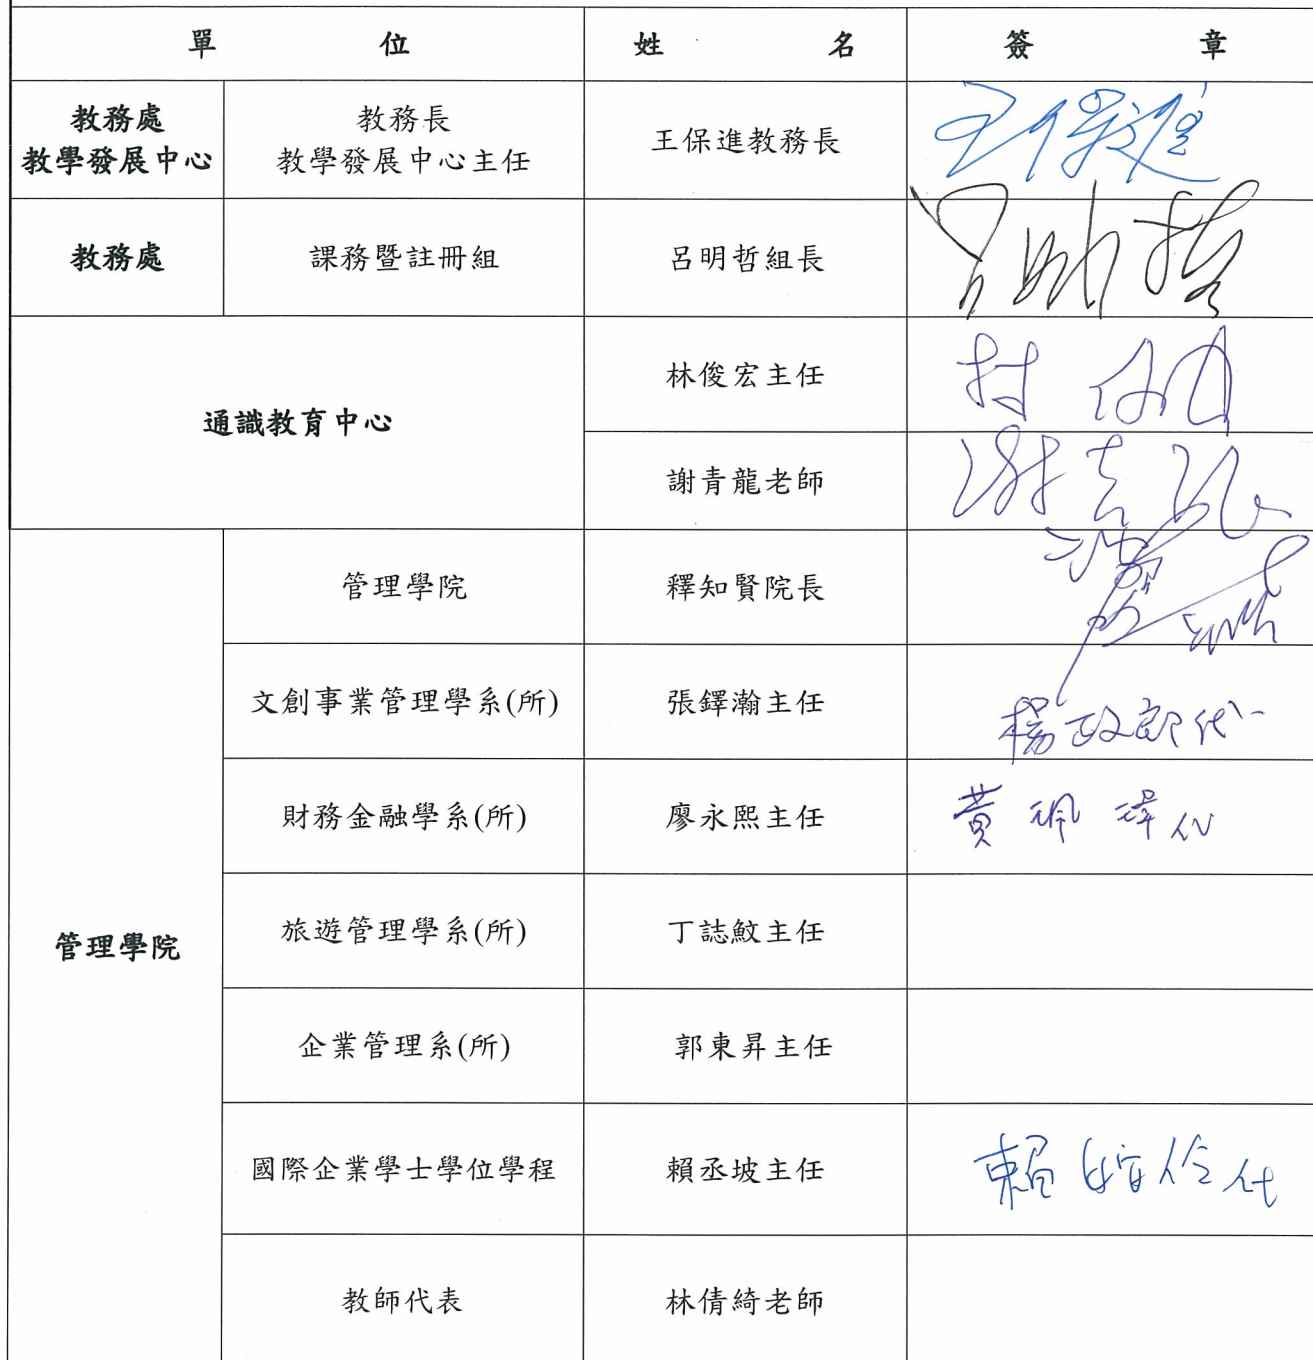 單 位 姓 名 簽 章
教務處
教學發展中心
教務長
教學發展中心主任
王保進教務長
王保進
教務處 課務暨註冊組 呂明哲組長
呂明哲
通識教育中心
林俊宏主任
林俊
謝青龍老師
謝青龍
管理學院
管理學院 釋知賢院長
文創事業管理學系(所) 張鐸瀚主任 楊政郎代
財務金融學系(所) 廖永熙主任 黃珮瑋代
旅遊管理學系(所) 丁誌魰主任
企業管理系(所) 郭東昇主任
國際企業學士學位學程 賴丞坡主任
教師代表 林倩綺老師